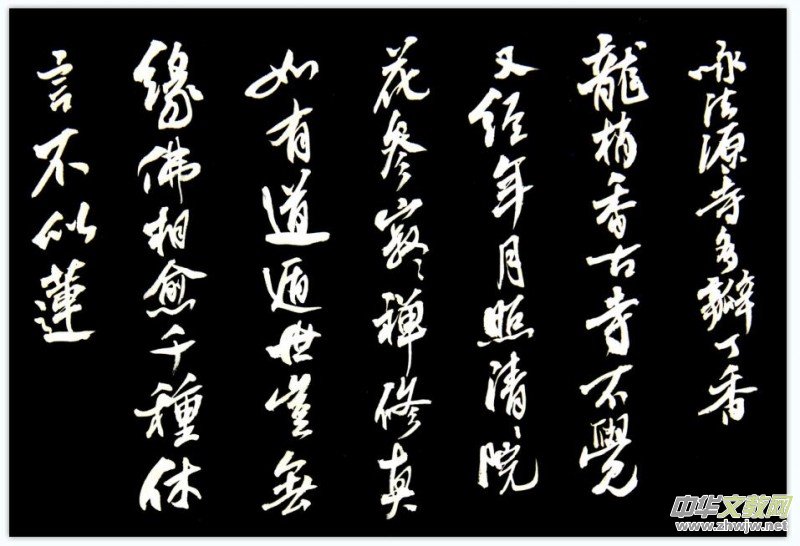 咏法源寺多瓣丁香
龍梢香古寺不覺
又經年月照清〻院
花參寂〻禪修真
如有道遁世豈無
緣佛相愈千種休
言不似蓮
中华文教网
www.zhwjw.net